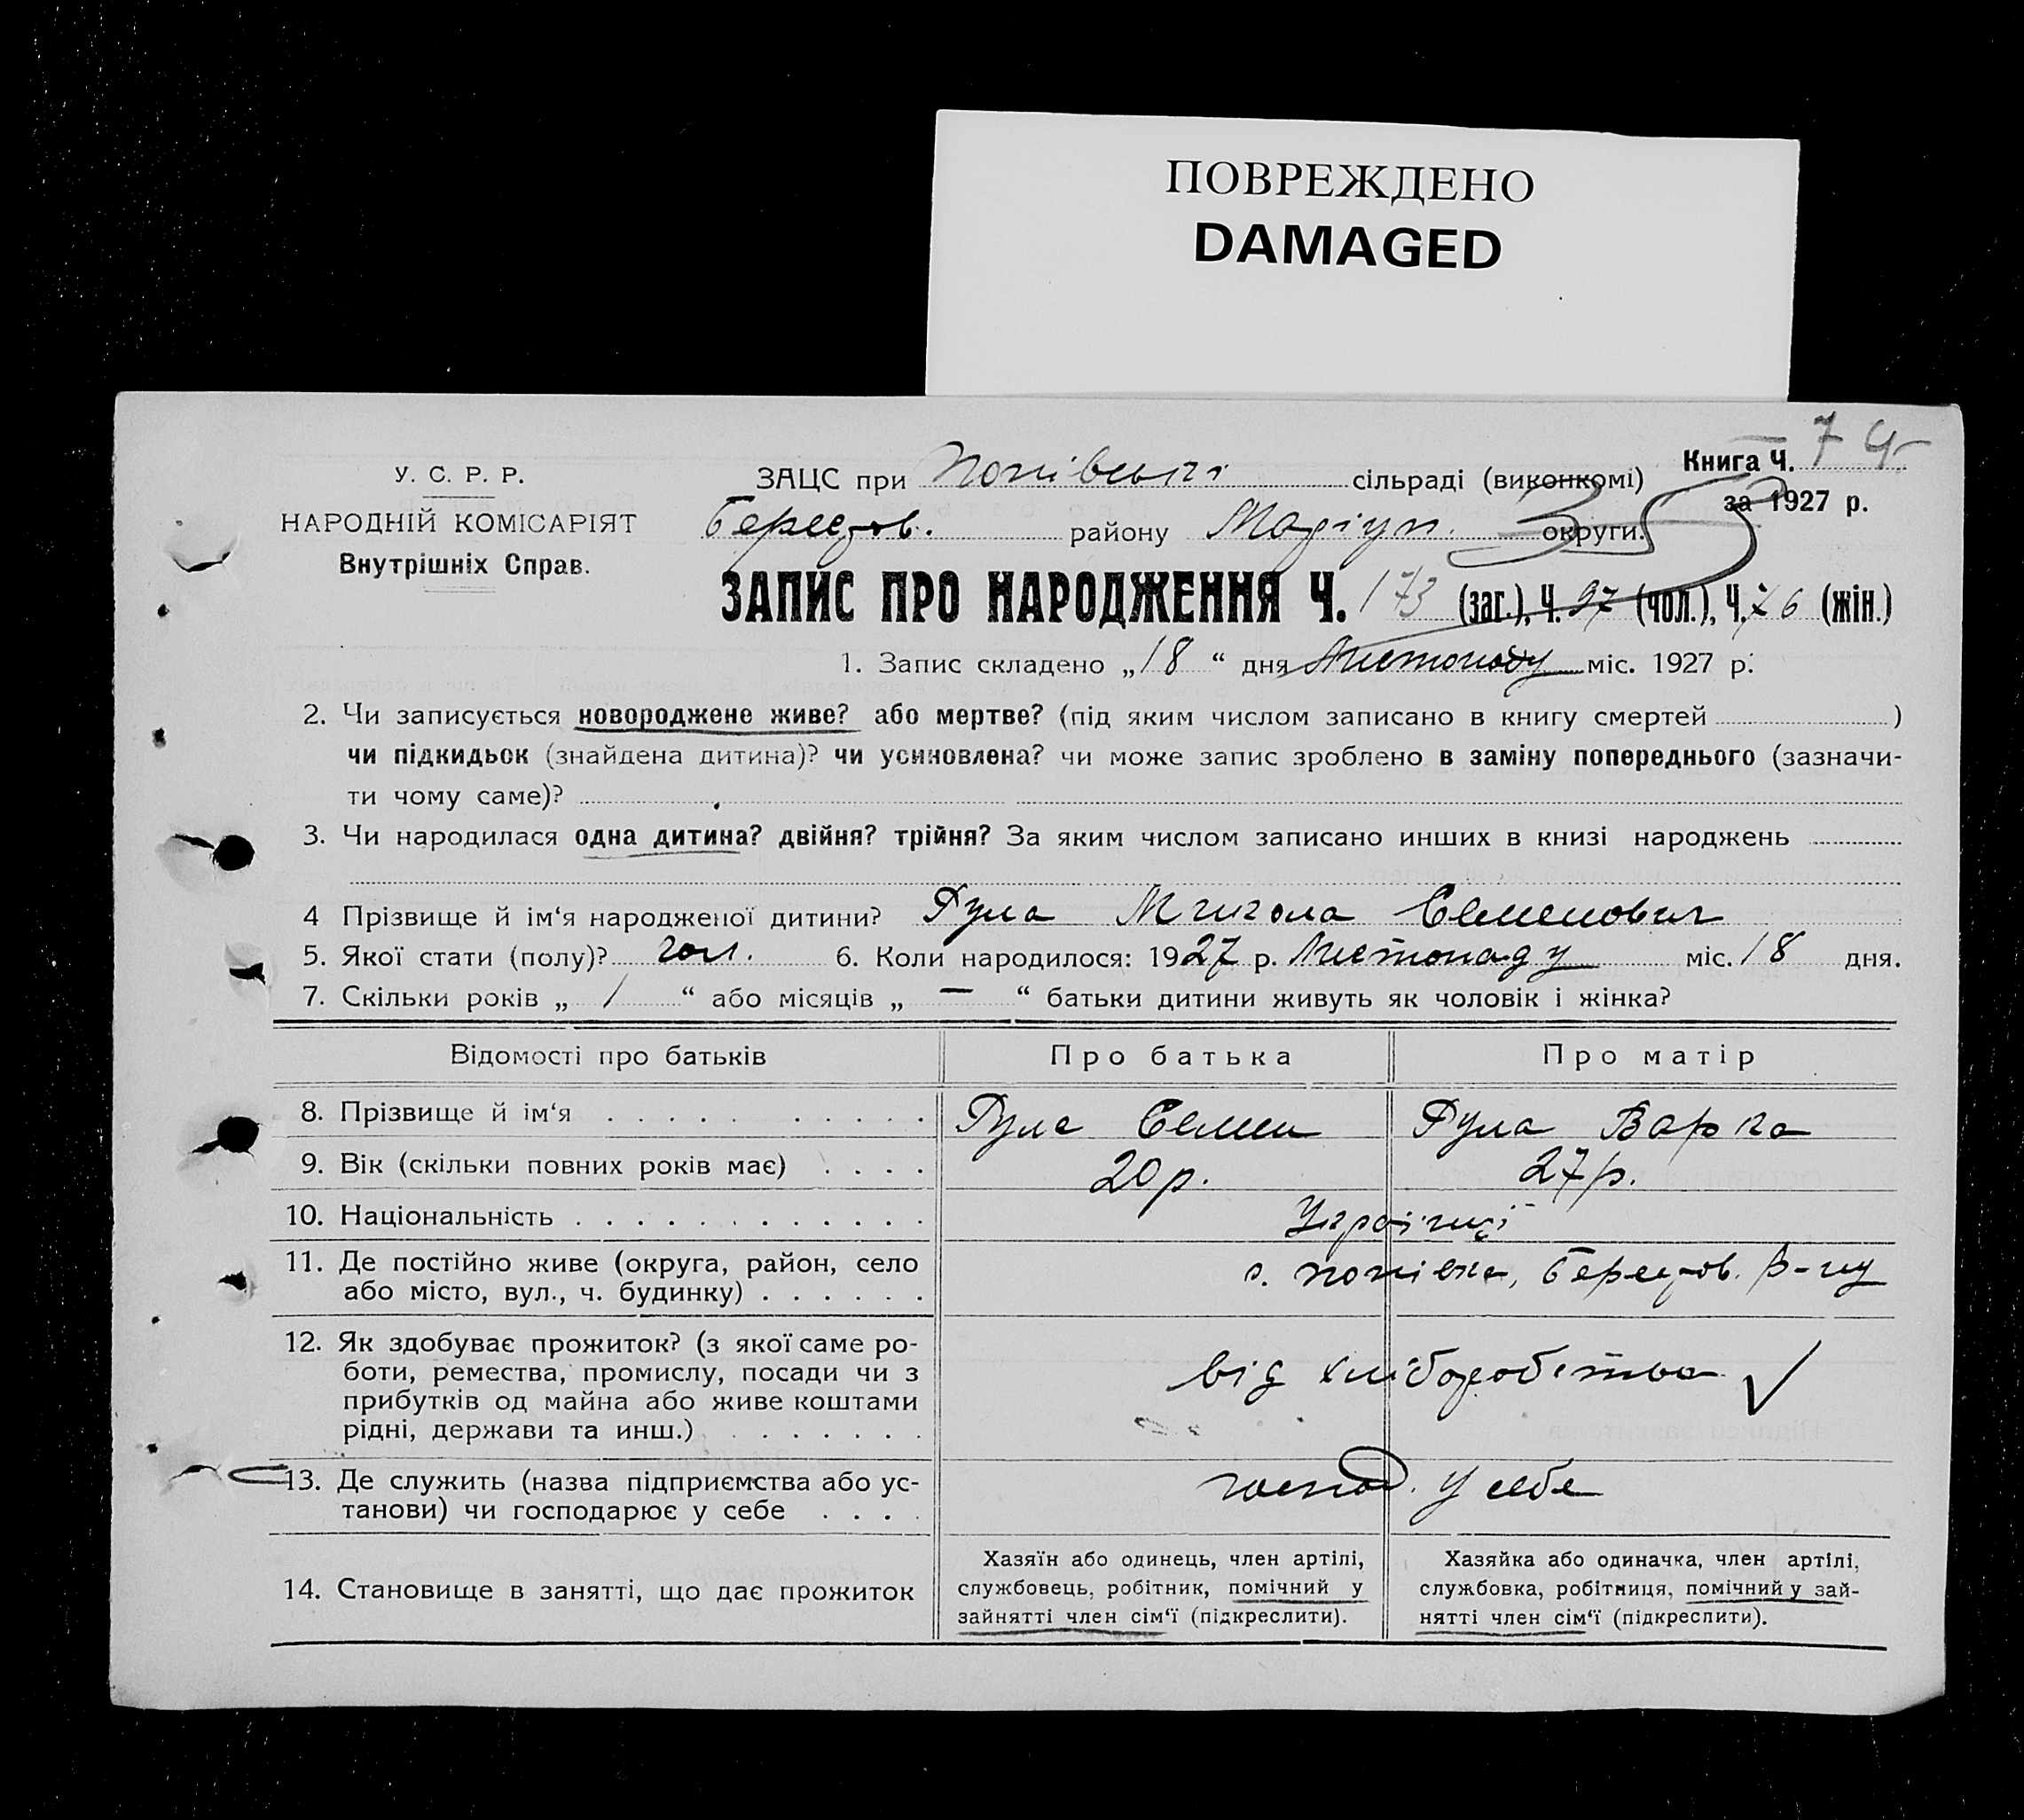 ПОВРЕЖДЕНО
DAMAGED
Книга Ч. 74
за 1927 р.
У. С. Р. Р.
НАРОДНІЙ КОМІСАРІЯТ
Внутрішніх Справ.
ЗАЦС при Попівській сільраді (виконкомі)
Берестов. району Маріуп. округи.
35
ЗАПИС ПРО НАРОДЖЕННЯ Ч. 173 (заг.), Ч. 97 (чол.), Ч. 76 (жін.)
1. Запис складено „18“ дня Листопаду міс. 1927 р.
2. Чи записується новороджене живе? або мертве? (під яким числом записано в книгу смертей )
чи підкидьок (знайдена дитина)? чи усиновлена? чи може запис зроблено в заміну попереднього (зазначи-
ти чому саме)?
3. Чи народилася одна дитина? двійня? трійня? За яким числом записано инших в книзі народжень
4 Прізвище й ім‘я народженої дитини? Гула Микола Семенович
5. Якої стати (полу)? чол. 6. Коли народилося: 1927 р. Листопаду міс. 18 дня.
7. Скільки років „ 1 “ або місяців „ — “ батьки дитини живуть як чоловік і жінка?
Відомості про батьків Про батька Про матір
8. Прізвище й ім‘я Гула Семен Гула Варка
9. Вік (скільки повних років має) 20 р. 27 р.
10. Національність Українці
11. Де постійно живе (округа, район, село
або місто, вул., ч. будинку) с. Попівка, Берестов. р-ну
12. Як здобуває прожиток? (з якої саме ро-
боти, ремества, промислу, посади чи з
прибутків од майна або живе коштами
рідні, держави та инш.) від хліборобства
13. Де служить (назва підприємства або ус-
танови) чи господарює у себе господ. у себе
14. Становище в занятті, що дає прожиток
Хазяїн або одинець, член артілі,
службовець, робітник, помічний у
зайнятті член сім‘ї (підкреслити).
Хазяйка або одиначка, член артілі,
службовка, робітниця, помічний у зай-
нятті член сім‘ї (підкреслити).